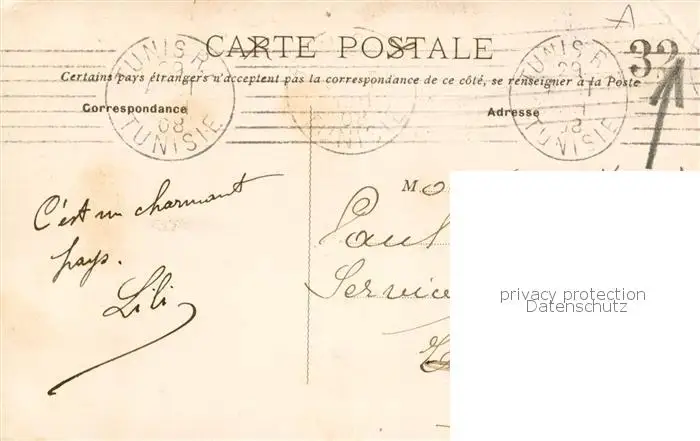 CARTE POSTALE
Certains pays étrangers n'acceptent pas la correspondance de ce côté, se renseigner à la Poste
Correspondance
Adresse
TUNIS R.P
TUNISIE
08
TUNIS R.P
TUNISIE
08
32
C'est un charmant
pays.
Lili
Mo
Paul
Service
privacy protection
Datenschutz